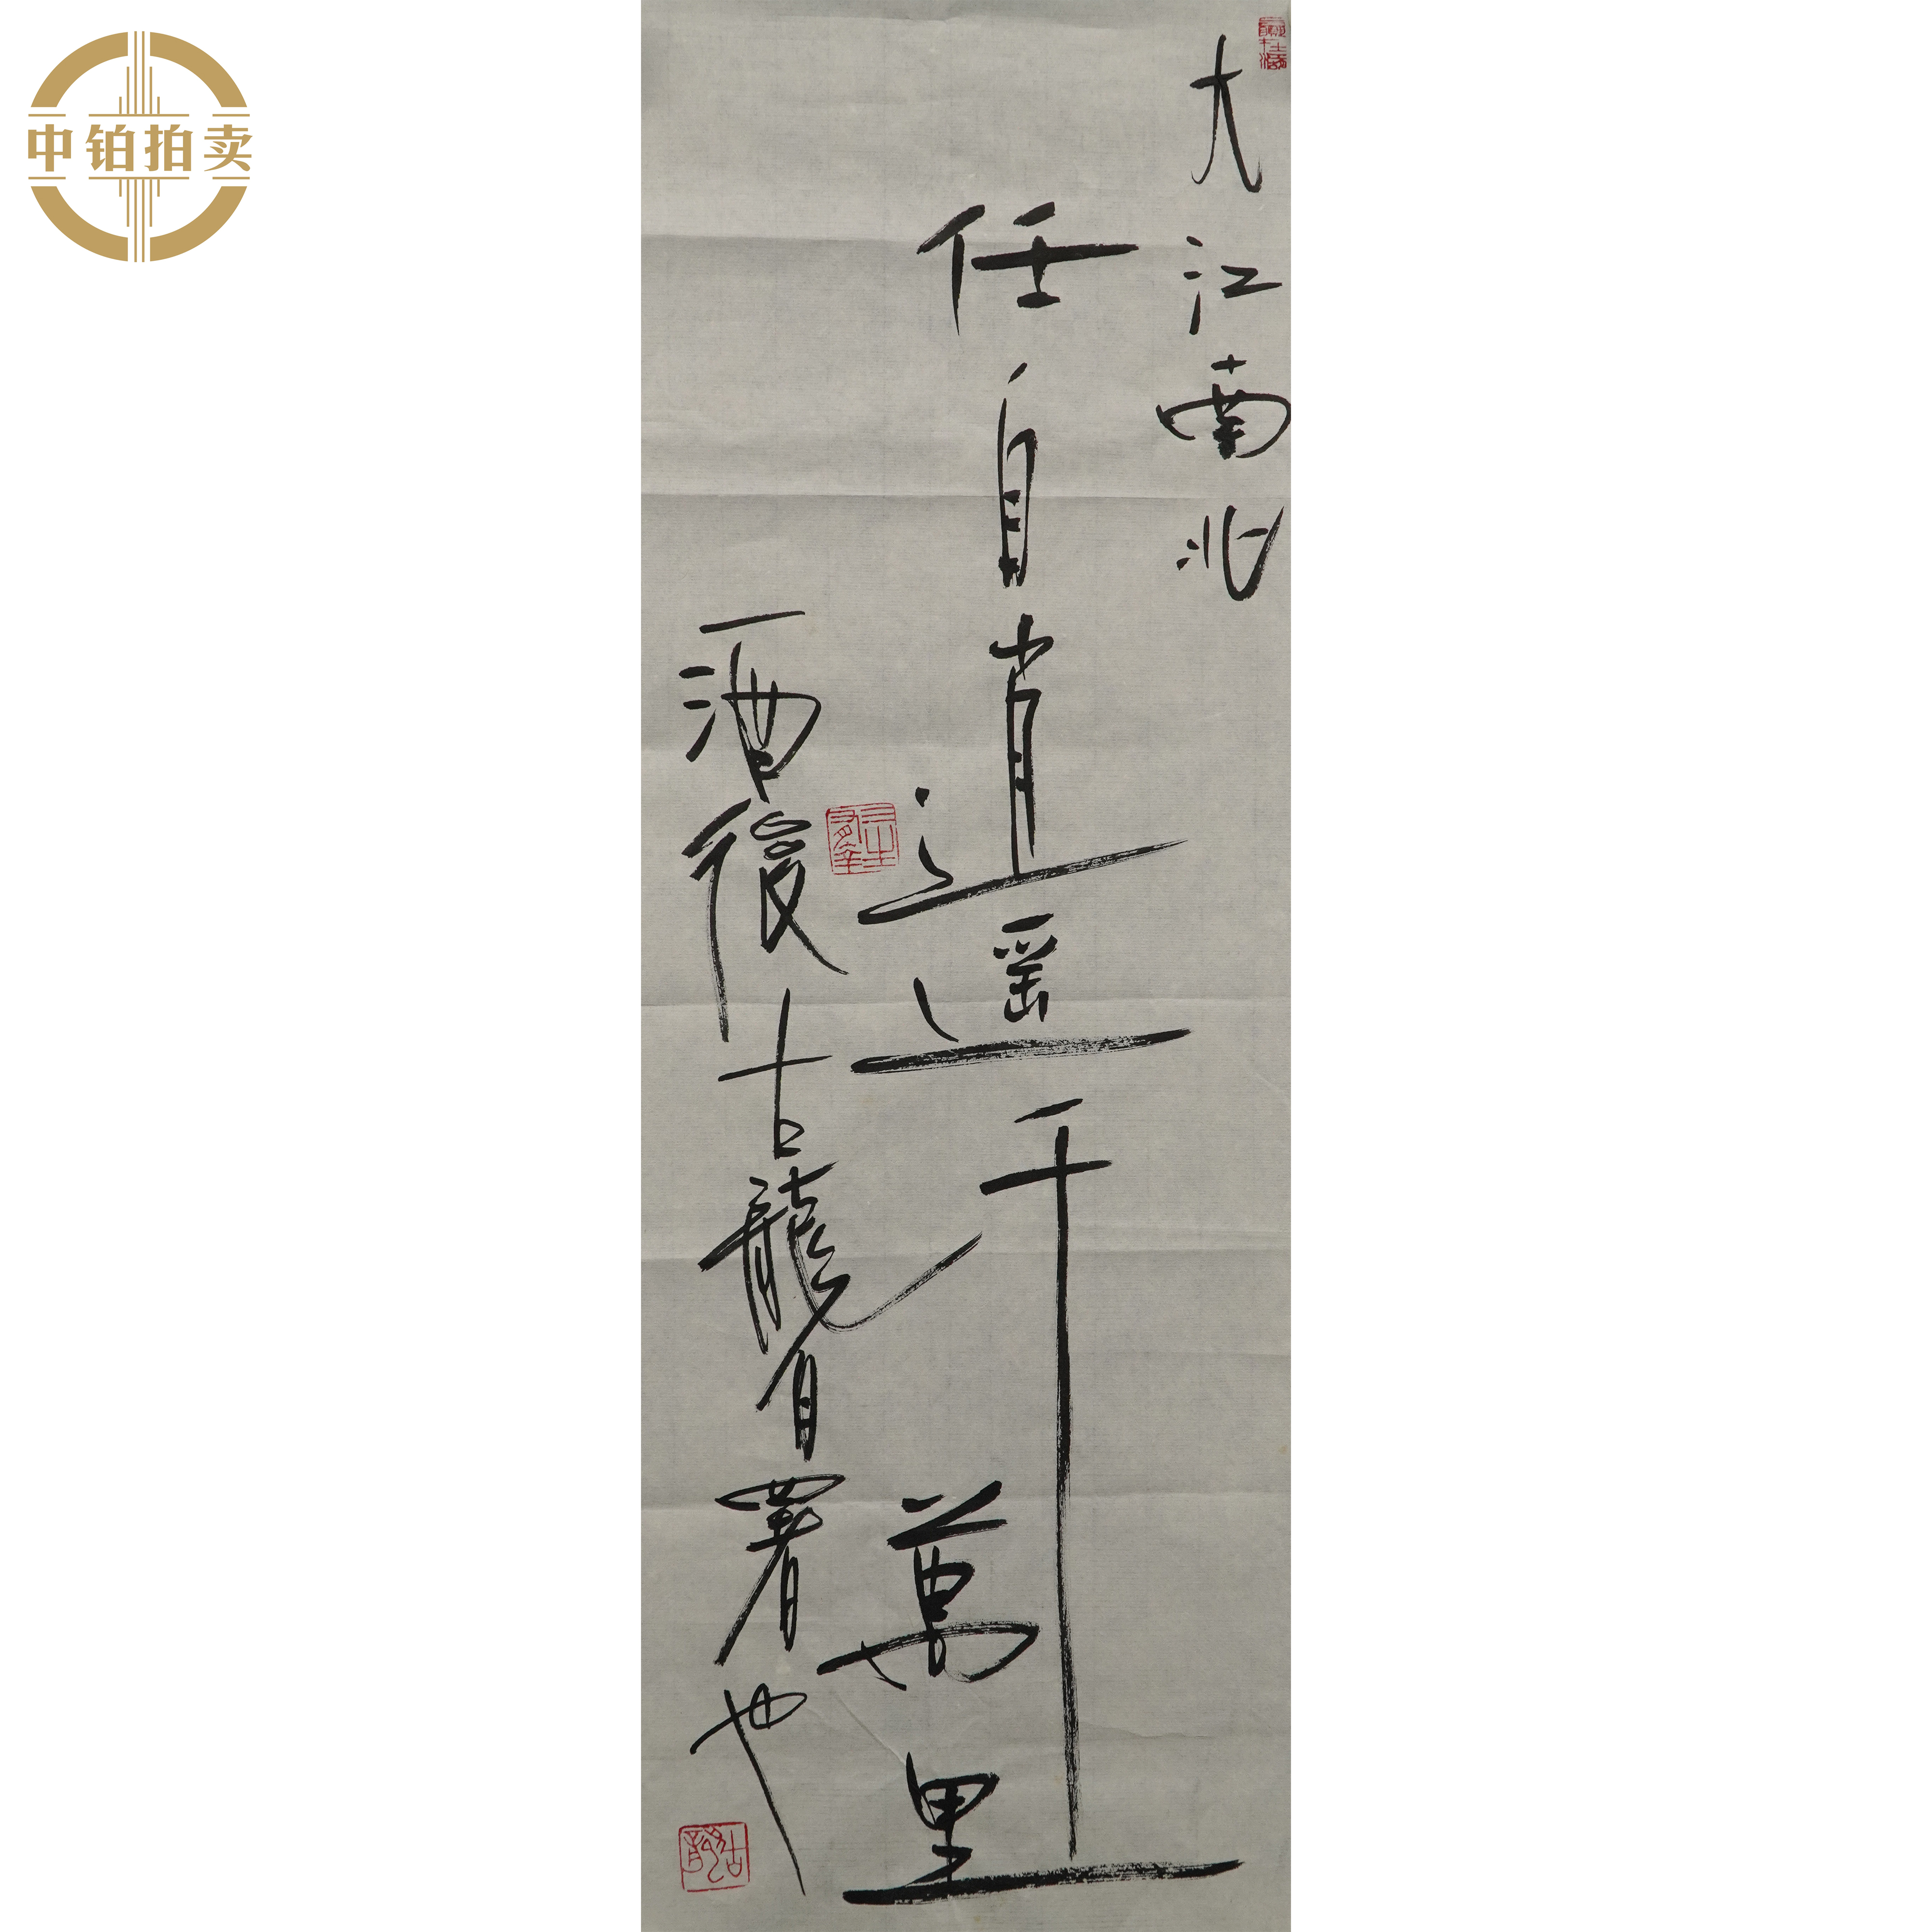 中铂拍卖
大江南北
任自逍遥千萬里
酒後古龍自署也
古龍